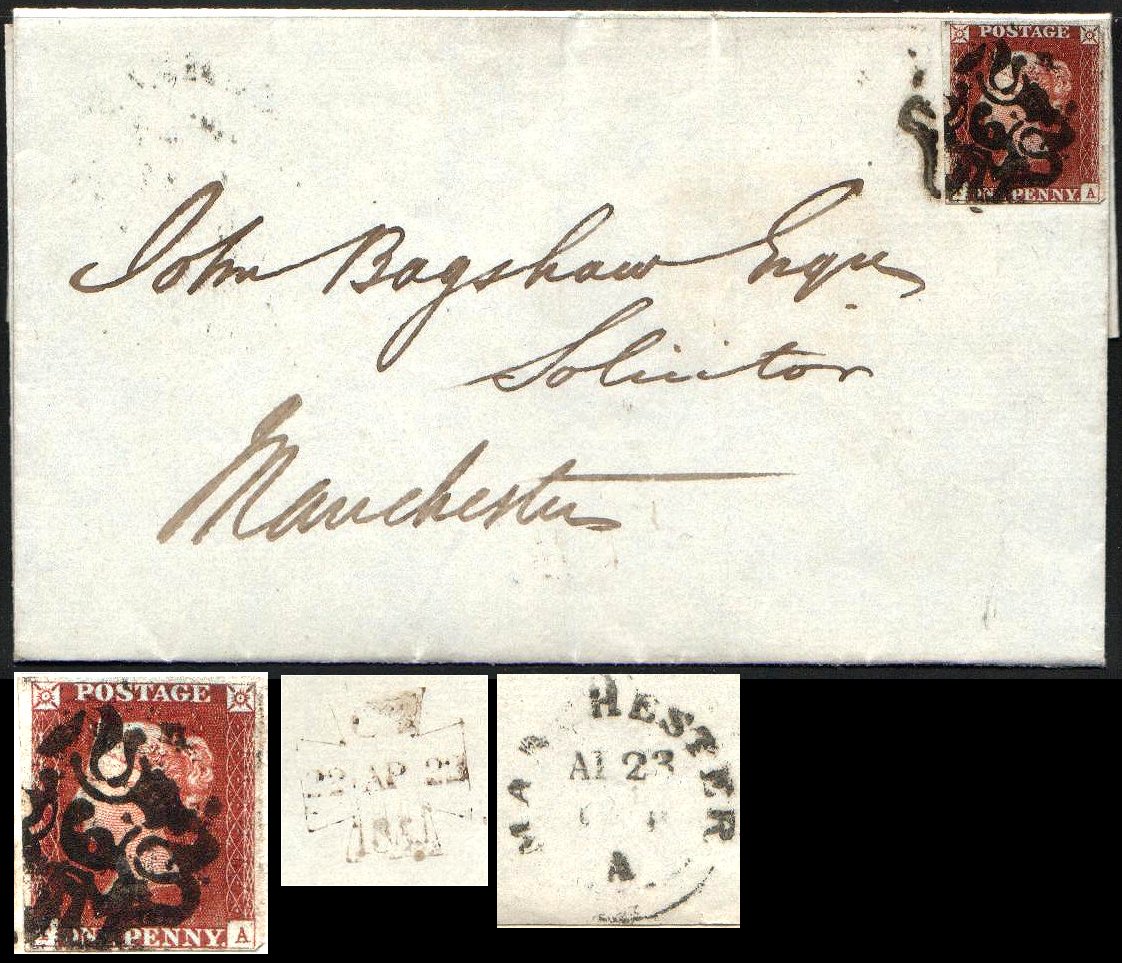 POSTAGE
PENNY. A
John Bagshaw Esqre
Solicitor
Manchester
POSTAGE
PENNY. A
22 AP 22
HESTER
23
A